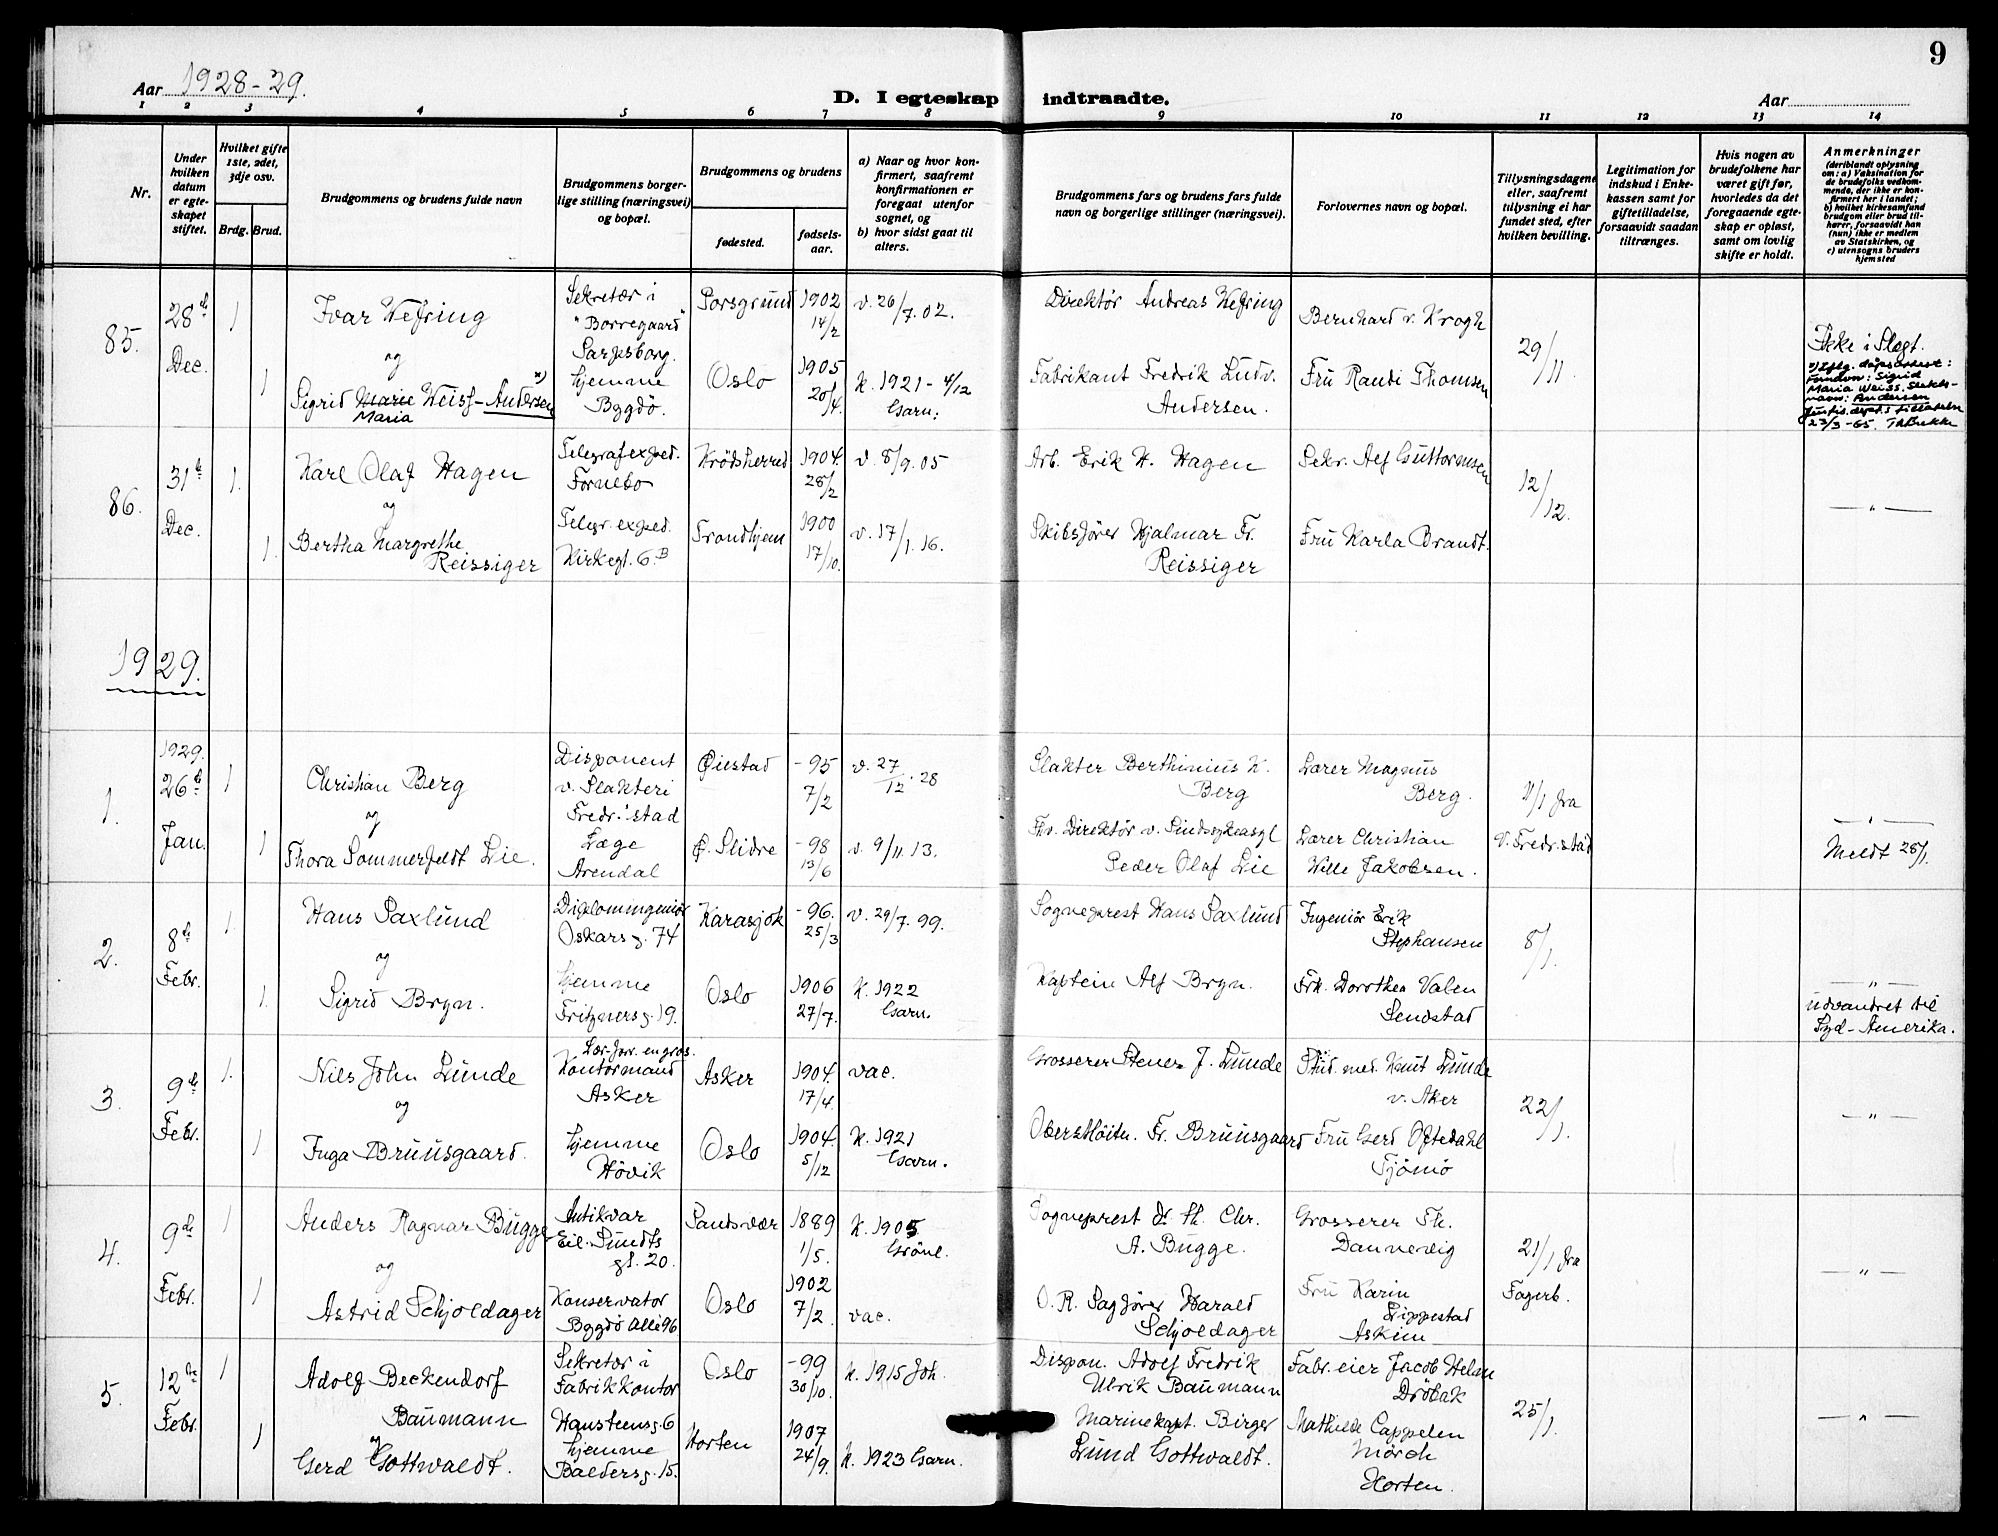 9
Aar 1928-29.
D. I egteskap indtraadte.
Aar
1 2 3 4 5 6 7 8 9 10 11 12 13 14
Nr.
Under
hvilken
datum
er egte-
skapet
stiftet.
Hvilket gifte
1ste, 2det,
3dje osv.
Brdg. Brud.
Brudgommens og brudens fulde navn
Brudgommens borger-
lige stilling (næringsvei)
og bopæl.
Brudgommens og brudens
fødested.
fødsels-
aar.
a) Naar og hvor kon-
firmert, saafremt
konfirmationen er
foregaat utenfor
sognet, og
b) hvor sidst gaat til
alters.
Brudgommens fars og brudens fars fulde
navn og borgerlige stillinger (næringsvei).
Forlovernes navn og bopæl.
Tillysningsdagene
eller, saafremt
tilysning ei har
fundet sted, efter
hvilken bevilling.
Legitimation for
indskud i Enke-
kassen samt for
giftetilladelse,
forsaavidt saadan
tiltrænges.
Hvis nogen av
brudefolkene har
været gift før,
hvorledes da det
foregaaende egte-
skap er opløst,
samt om lovlig
skifte er holdt.
Anmerkninger
(deriblandt oplysning
om: a) Vaksination for
de brudefolks vedkom-
mende, der ikke er kon-
firmert her i landet;
b) hvilket kirkesamfund
brudgom eller brud til-
hører, forsaavidt han
(hun) ikke er medlem
av Statskirken, og
c) utensogns bruders
hjemsted
85.
28de
Dec.
1
1
Ivar Wefring
og
Sigrid Marie Weiss-Andersen x)
Maria
Sekretær i
"Borregaard"
Sarpsborg.
hjemme
Bygdø.
Porsgrund
Oslo
1902
14/2
1905
20/4.
v. 26/7.02.
k. 1921 - 4/12
Garn:
Direktør Andreas Wefring
Fabrikant Fredrik Ludv.
Andersen.
Bernhard v. Krogh
Fru Randi Thomsen
29/11
Ikke i Slegt.
x) Iflg. dåpsattest:
Fornavn: Sigrid
Maria Weiss. Slekts-
navn: Andersen
Justis.dept.s tillatelse
23/3-65.
86.
31te
Dec.
1.
1.
Karl Olaf Hagen
og
Bertha Margrethe
Reissiger
Telegrafexped.
Fornebo
Telegr. exped.
Kirkegt. 6.B
Krødsherred
Trondhjem
1904.
28/2
1900
17/10.
v. 8/9.05
v. 17/1.16.
Arb. Erik H. Hagen
Skibsfører Hjalmar Fr.
Reissiger
Sekr. Alf Guttormsen
Fru Karla Brandt.
12/12.
— " —
1929.
1.
1929.
26de
Jan.
1
1
Christian Berg
og
Thora Sommerfeldt Lie.
Disponent
v. Slakteri
Fredr.'stad
Læge
Arendal
Øiestad
Ø. Slidre
- 95
7/2
- 98
13/6
v. 27/12.28
v. 9/11.13.
Slakter Berthinius K.
Berg
Fhv. Direktør v. Sindsykeasyl
Peder Olaf Lie
Lærer Magnus
Berg.
Lærer Christian
Wille Jakobsen.
11/1 fra
V. Fredr.stad
Meldt 28/1.
2.
8de
Febr.
1.
1.
Hans Saxlund
og
Sigrid Bryn.
Diplomingeniør
Oskarsg. 74
hjemme
Fritznersg. 19.
Karasjok
Oslo
- 96.
25/3
1906
27/7.
v. 29/7.99.
k. 1922
Garn.
Sogneprest Hans Saxlund
Kaptein Alf Bryn.
Ingeniør Erik
Stephansen
Frk. Dorothea Valen
Sendstad
8/1.
— " —
udvandret til
Syd-Amerika.
3.
9de
Febr.
1.
1
Niels John Lunde
og
Inga Bruusgaard.
Lær-forr. en gros.
Kontormand
Asker
hjemme
Høvik
Asker
Oslo
1904.
17/4.
1904.
5/12
vac.
k. 1921
Garn.
Grosserer Stener J. Lunde
Oberstløitn. Fr. Bruusgaard
Stud. med. Knut Lunde
v. Aker
Fru Gerd Oftedahl
Tjømø
22/1.
— " —
4.
9de
Febr.
1
1
Anders Ragnar Bugge
og
Astrid Schjoldager
Antikvar
Eil. Sundts
gt. 20.
Konservator
Bygdø Allé 96
Sandsvær
Oslo
1889
1/5.
1902
7/2
k. 1905
Grønl.
vac.
Sogneprest dr. th. Chr.
A. Bugge.
O. R. Sagfører Harald
Schjoldager
Grosserer Th.
Dannevig
Fru Karin
Lippestad
Askim
21/1 fra
Fagerb.
— " —
5
12te
Febr.
1
1
Adolf Beckendorf
Baumann
og
Gerd Gottwaldt.
Sekretær i
Fabrikkontor
Hansteensg. 6
hjemme
Baldersg. 15.
Oslo
Horten
- 99
30/10.
1907
24/9.
k. 1915 Joh.
k. 1923 Garn.
Dispon. Adolf Fredrik
Ulrik Baumann
Marinekapt. Birger
Lund Gottwaldt.
Fabr. eier Jacob Helm
Drøbak
Mathilde Cappelen
Mørch
Horten.
25/1.
— " —